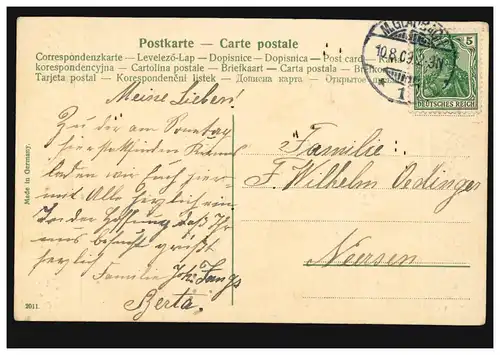 Postkarte — Carte postale
Correspondenzkarte — Levelező-Lap — Dopisnice — Dopisnica — Post card —
korespondencyjna — Cartolina postale — Briefkaart — Carta postala —
Tarjeta postal — Korespondenční listek — Дописна карта — Открытое
M.GLADBACH
10.8.09
1
5
DEUTSCHES REICH
Made in Germany.
Meine Lieben!
Zu der am Sonntag
hier stattfindenden Kirmes
laden wir Euch hier-
mit Alle herzlich ein
In der Hoffnung daß Ihr
uns besucht grüßt
herzlich
Familie Joh.
Berta
Familie
F. Wilhelm Oedinger
Neersen
2011.